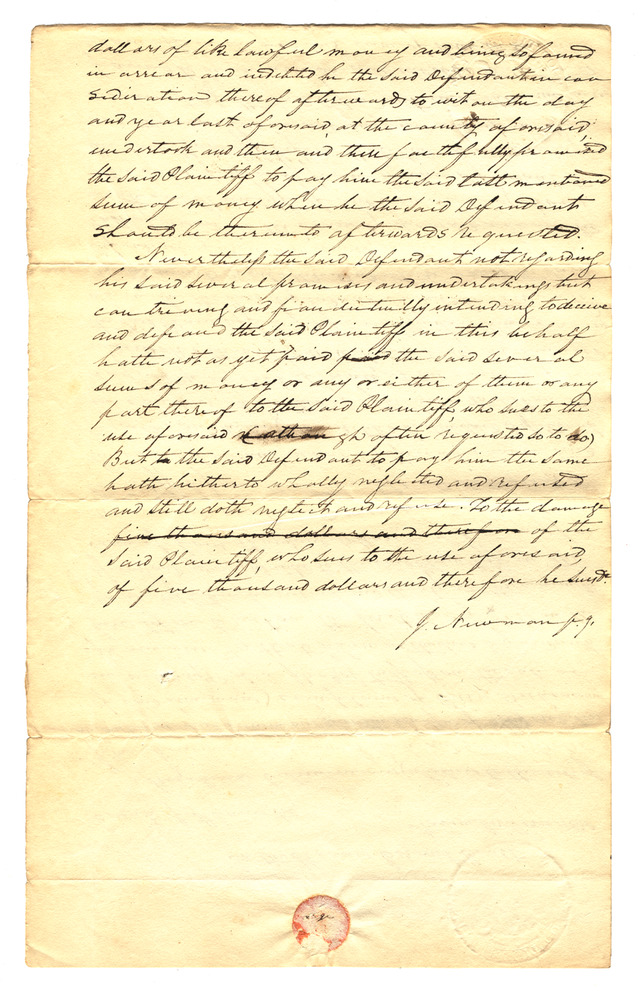 dollars of like lawful money and being so found
in arrear and indebted he the said Defendant in con
sideration thereof afterwards, to wit on the day
and year last aforesaid, at the county aforesaid,
undertook and then and there faithfully promised
the said Plaintiff to pay him the said last mentioned
sum of money when he the said Defendant
should be thereunto afterwards requested.
Nevertheless the said Defendant not regarding
his said several promises and undertakings but
contriving and fraudulently intending to deceive
and defraud the said Plaintiff in this behalf
hath not as yet paid paid the said several
sums of money or any or either of them or any
part thereof to the said Plaintiff who sues to the
use aforesaid (although often requested so to do)
But the said Defendant to pay him the same
hath hitherto wholly neglected and refused
and still doth neglect and refuse. To the damage
five thousand dollars and therefore of the
said Plaintiff, who sues to the use aforesaid,
of five thousand dollars and therefore he sues &c.
J. Newman p.q.